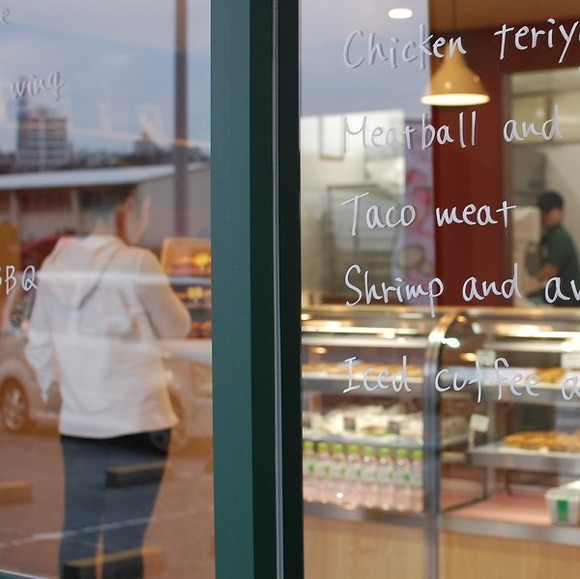 wing
BBQ
Chicken teriy
Meatball and
Taco meat
Shrimp and av
Iced coffee a